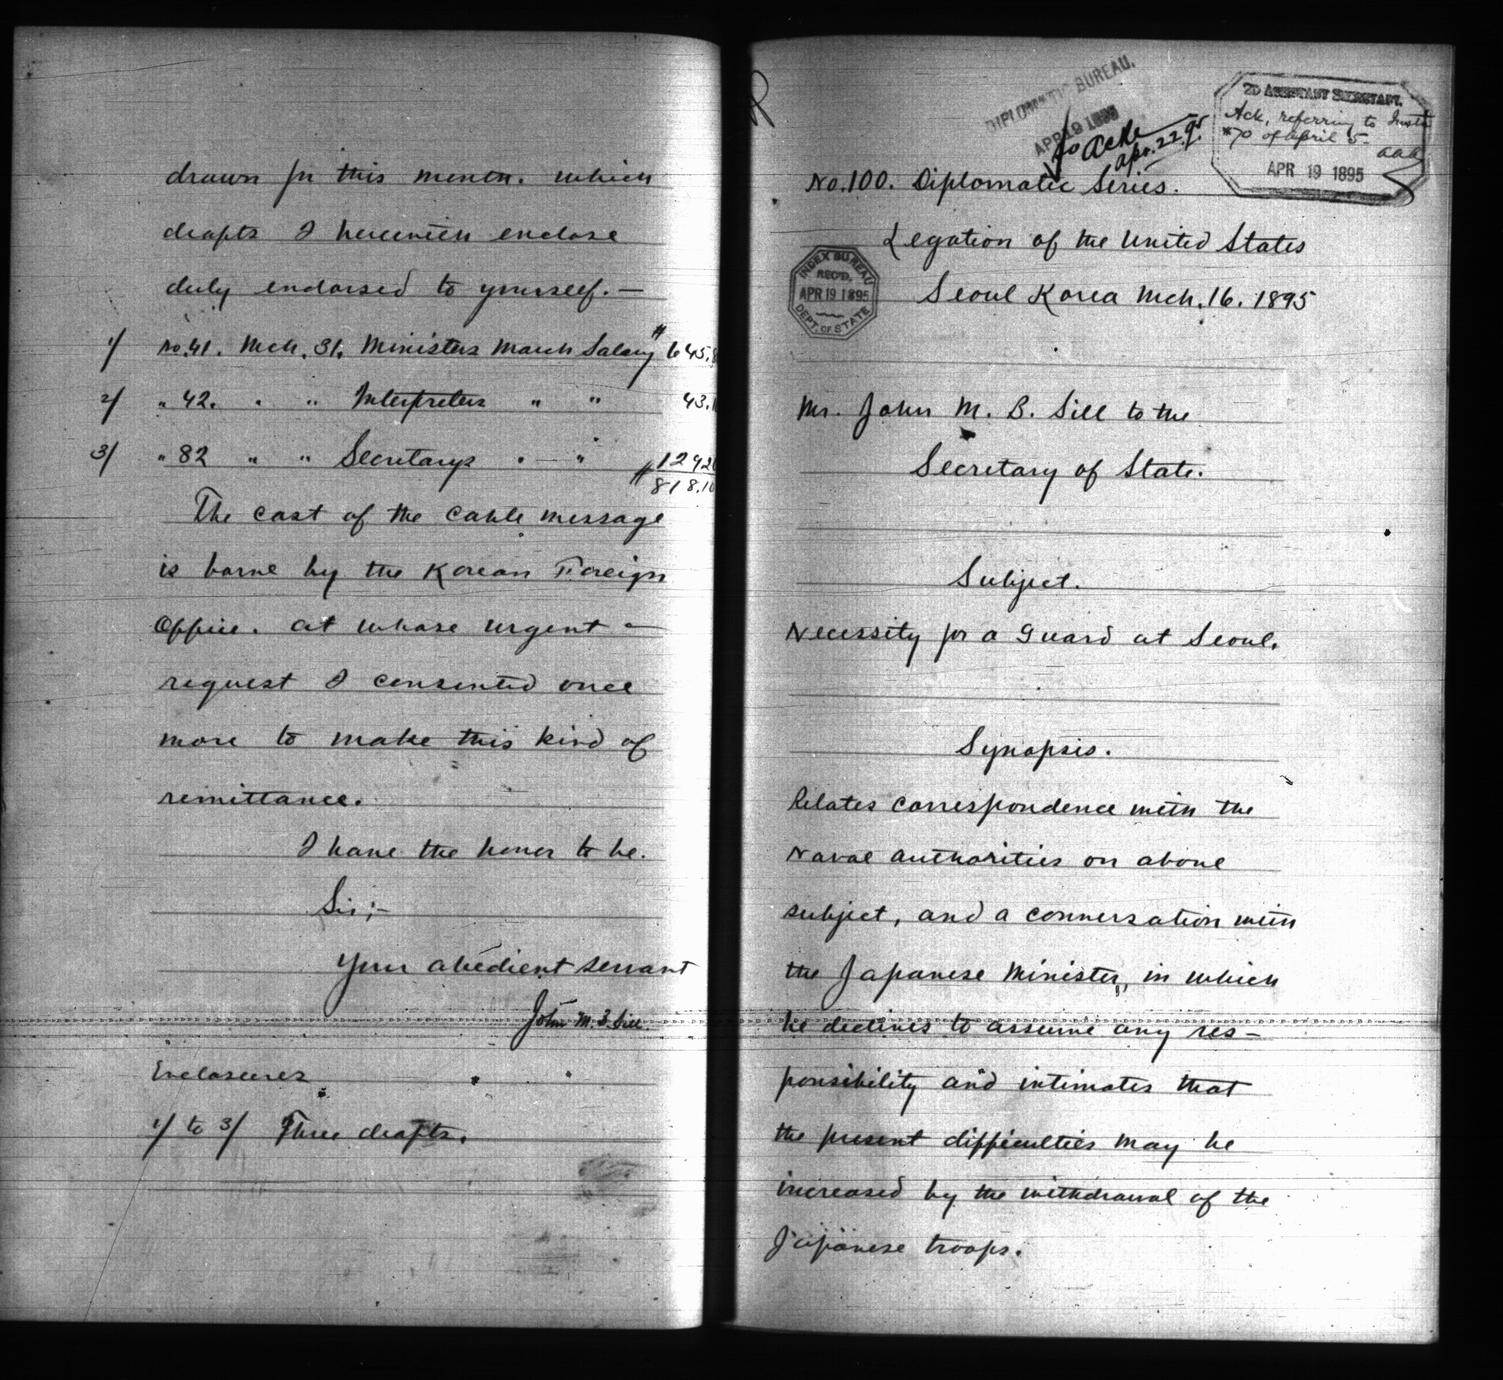 drawn for this month. which
drafts I herewith enclose
duly endorsed to yourself.—
1/ No.41. Mch. 31. Ministers March Salary $ 645.
2/ " 42. " " Interpreters " " 43.
3/ " 82 " " Secretarys " " 129
$ 818.10
The cost of the cable message
is borne by the Korean Foreign
Office. at whose urgent —
request I consented once
more to make this kind of
remittance.
I have the honor to be.
Sir;-
Your obedient servant
John M. B. Sill
Enclosures
1/ to 3/ Three drafts.
DIPLOMATIC BUREAU.
APR 19 1895
Ackd
Apr. 22. 95
2D ASSISTANT SECRETARY.
Ack, referring to Inst
#70 of April 5.
aaa
APR 19 1895
No.100. Diplomatic Series.
Legation of the United States
INDEX BUREAU
REC'D.
APR 19 1895
DEPT. OF STATE
Seoul Korea Mch. 16. 1895
Mr. John M. B. Sill to the
Secretary of State.
Subject.
Necessity for a Guard at Seoul.
Synopsis.
Relates correspondence with the
Naval authorities on above
subject, and a conversation with
the Japanese Minister, in which
he declines to assume any res-
ponsibility and intimates that
the present difficulties may be
increased by the withdrawal of the
Japanese troops.